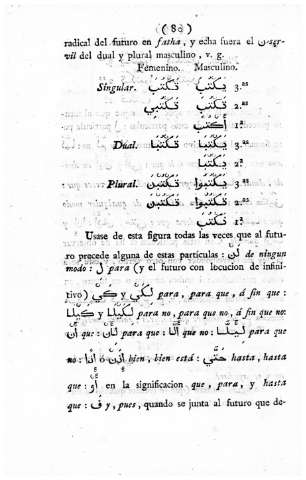 ( 88 )
radical del futuro en fatha, y echa fuera el ن ser-
vil del dual y plural masculino, v. g.
Femenino. Masculino.
Singular. تَكْتُبَ يَكْتُبَ 3.as
تَكْتُبِي تَكْتُبَ 2.as
أَكْتُبَ 1.ª
Dual. تَكْتُبَا يَكْتُبَا 3.as
تَكْتُبَا 2.ª
Plural. يَكْتُبْنَ يَكْتُبُوا 3.as
تَكْتُبْنَ تَكْتُبُوا 2.as
نَكْتُبَ 1.ª
Usase de esta figura todas las veces que al futu-
ro precede alguna de estas particulas: لَنْ á de ningun
modo: لِ para (y el futuro con locucion de infini-
tivo) كَيْ y لِكَيْ para, para que, á fin que:
كَيْلَا y لِكَيْلَا para no, para que no, á fin que no:
أَنْ que: لِأَنْ para que: أَلَّا que no: لِئَلَّا para que
no: إِذًا ó إِذَنْ bien, bien está: حَتَّى hasta, hasta
que: أَوْ en la significacion que, para, y hasta
que: فَ y, pues, quando se junta al futuro que de-